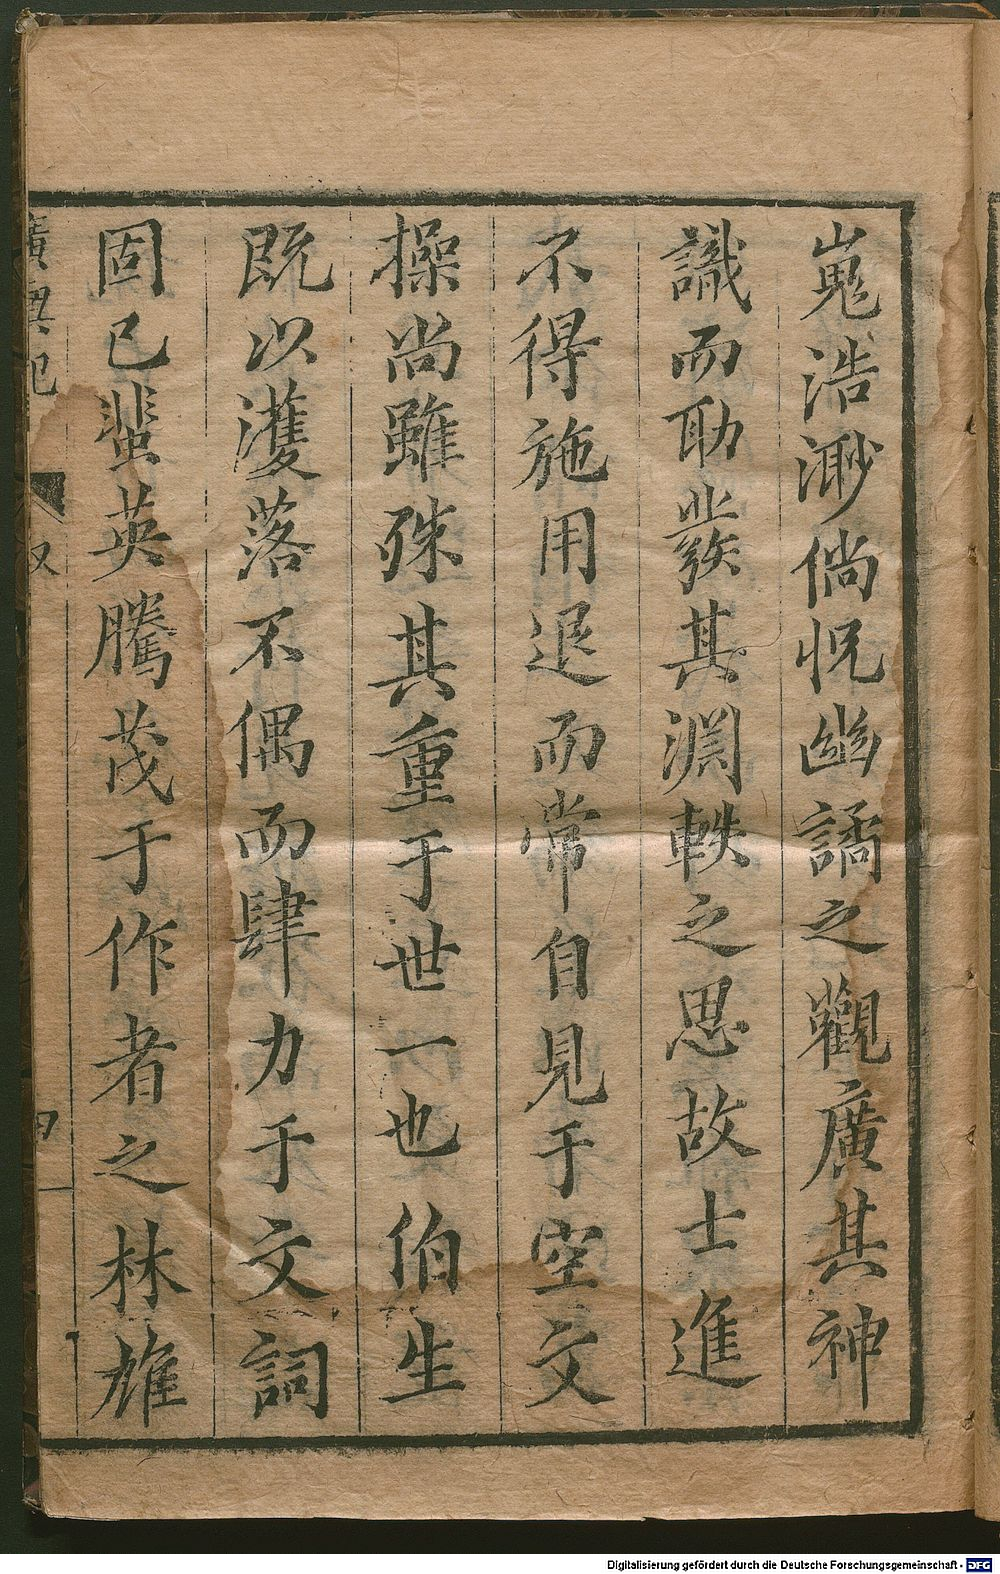 嵬浩渺倘怳幽譎之觀廣其神
識而助發其淵軼之思故士進
不得施用退而常自見于空文
操尚雖殊其重于世一也伯生
既以濩落不偶而肆力于文詞
固已蜚英騰茂于作者之林雄
廣輿記
叉
四
Digitalisierung gefördert durch die Deutsche Forschungsgemeinschaft - DFG